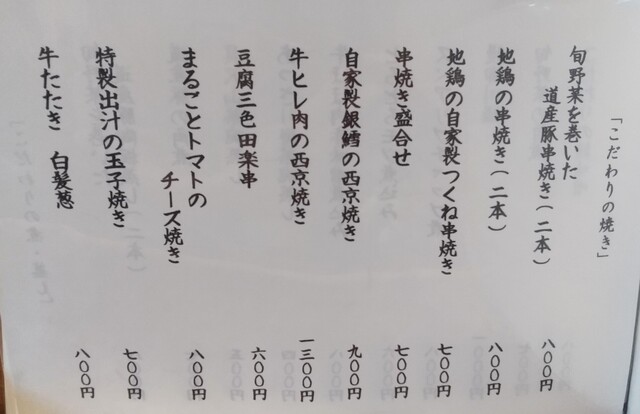 「こだわりの焼き」
旬野菜を巻いた
道産豚串焼き（二本）
八〇〇円
地鶏の串焼き（二本）
八〇〇円
地鶏の自家製つくね串焼き
七〇〇円
串焼き盛合せ
七〇〇円
自家製銀鱈の西京焼き
九〇〇円
牛ヒレ肉の西京焼き
一三〇〇円
豆腐三色田楽串
六〇〇円
まるごとトマトの
チーズ焼き
八〇〇円
特製出汁の玉子焼き
七〇〇円
牛たたき 白髪葱
八〇〇円